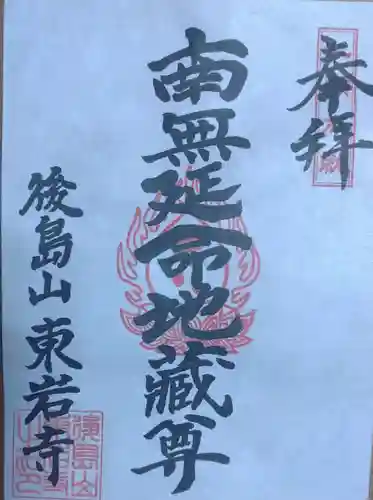 奉拝
南無延命地蔵尊
後島山東岩寺